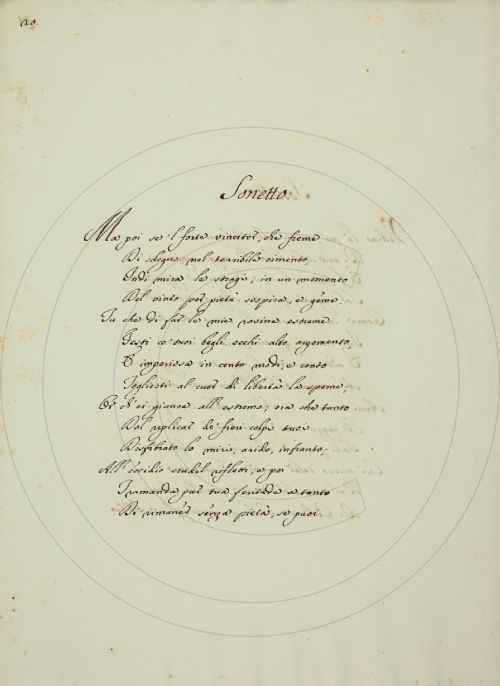 20.
Sonetto.
Ma poi se 'l forte vincitor, che freme
Di sdegno nel terribile cimento,
Indi mira le stragi; in un momento
Del vinto per pietà sospira, e geme.
Tu che di far le mie rovine estreme
Festi co' tuoi begli occhi alto argomento,
E imperiosa in cento modi, e cento
Togliesti al cuor di libertà la speme;
Or ch'ei giunse all' estremo; ora che tanto
Dal replicar de' fieri colpi tuoi
Disfibrato lo miri, arido, infranto;
All' eccidio crudel rifletti, e poi
Tramanda pur tua feritade a tanto
Di rimaner senza pietà, se puoi.